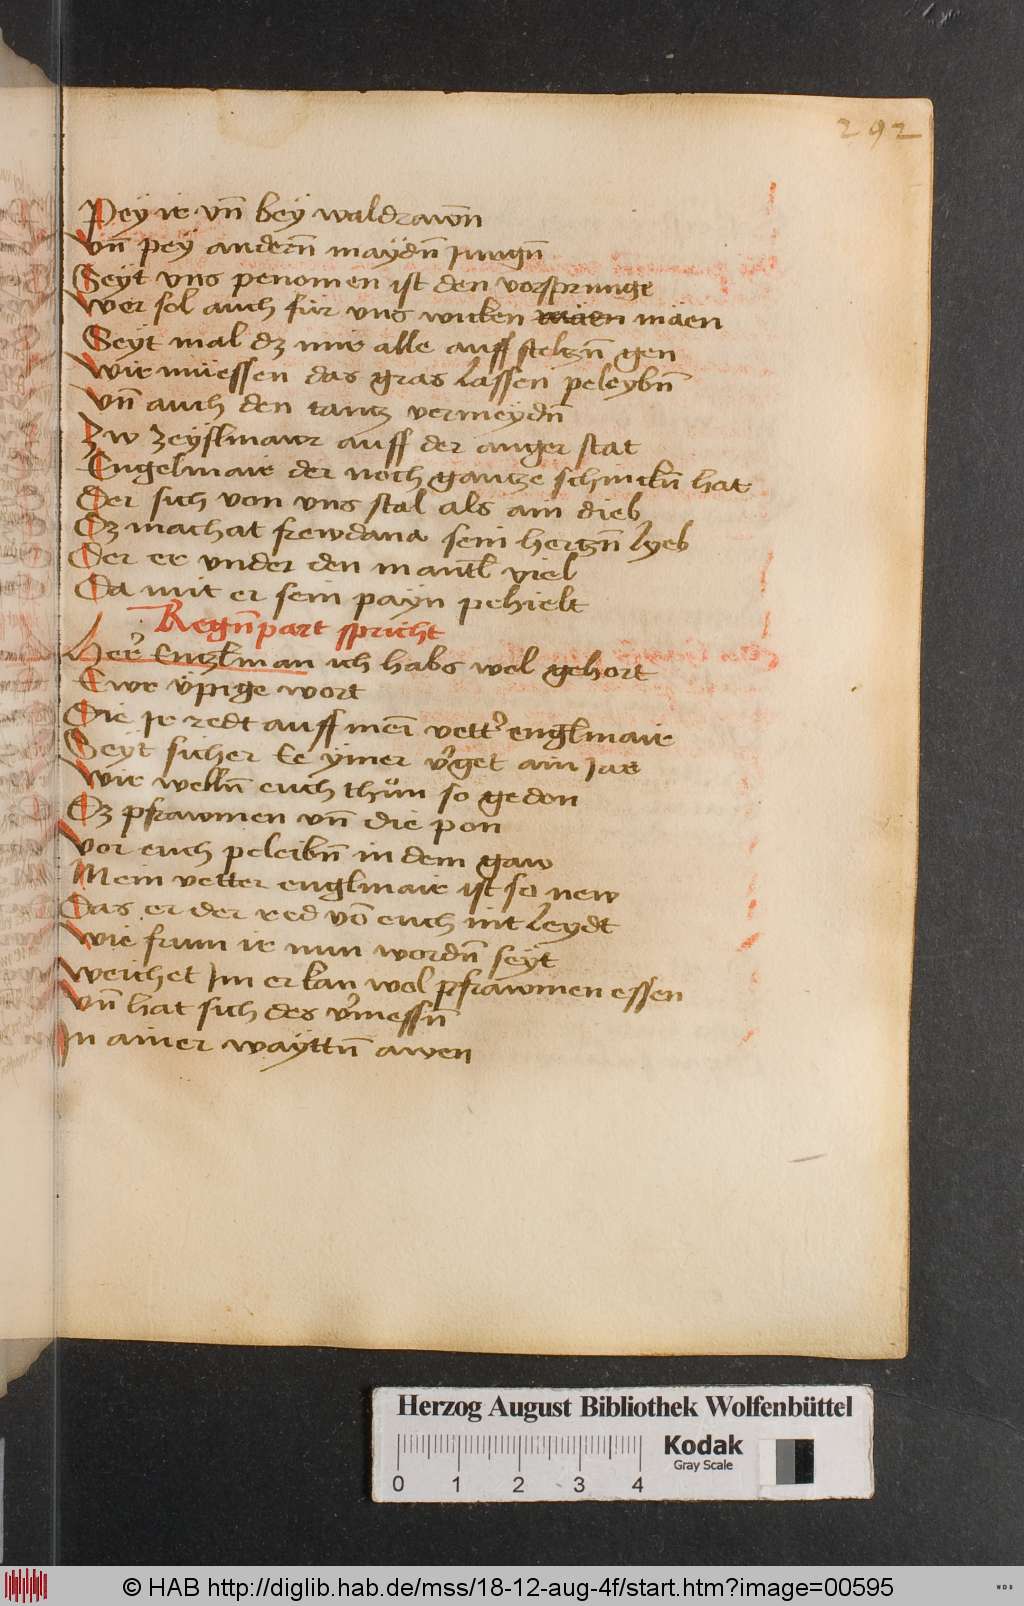 292
Pey ir vn̄ bey waldrawn̄
Vn̄ pey andern̄ maydn̄ Jungn̄
Seyt vns penomen ist den vorsprunge
Wer sol auch für vns wicken mäen mäen
Seyt mal dz mir alle auff steltzn̄ gen
Wir müessen das gras lassen peleybn̄
Vn̄ auch den tantz vermeydn̄
Zw Zeyslmawr auff der anger stat
Engelmair der noch gantze schinckn̄ hat
Der sich von vns stal als ain dieb
Dz machat frewdana sein hertzn̄ lyeb
Der er vnder den mantl viel
Da mit er sein payn pehielt
Regn̄part spricht
Her Englman ich habs wol gehort
Ewr üpige wort
Die Jr redt auff mei vett' englmair
Seyt sicher Ee ymer v'get ain Jar
Wir welln̄ euch thün so gedon
Dz pfrawmen vn̄ die pon
Vor euch peleibn̄ in dem gaw
Mein vetter englmair ist so new
Das er der red vō euch nit leydt
Wie frum ir nun wordn̄ seyt
Weichet Im er kan wol pfrawmen essen
Vn̄ hat sich des v'messn̄
In ainer wayttn̄ awen
Herzog August Bibliothek Wolfenbüttel
Kodak
Gray Scale
0 1 2 3 4
© HAB http://diglib.hab.de/mss/18-12-aug-4f/start.htm?image=00595